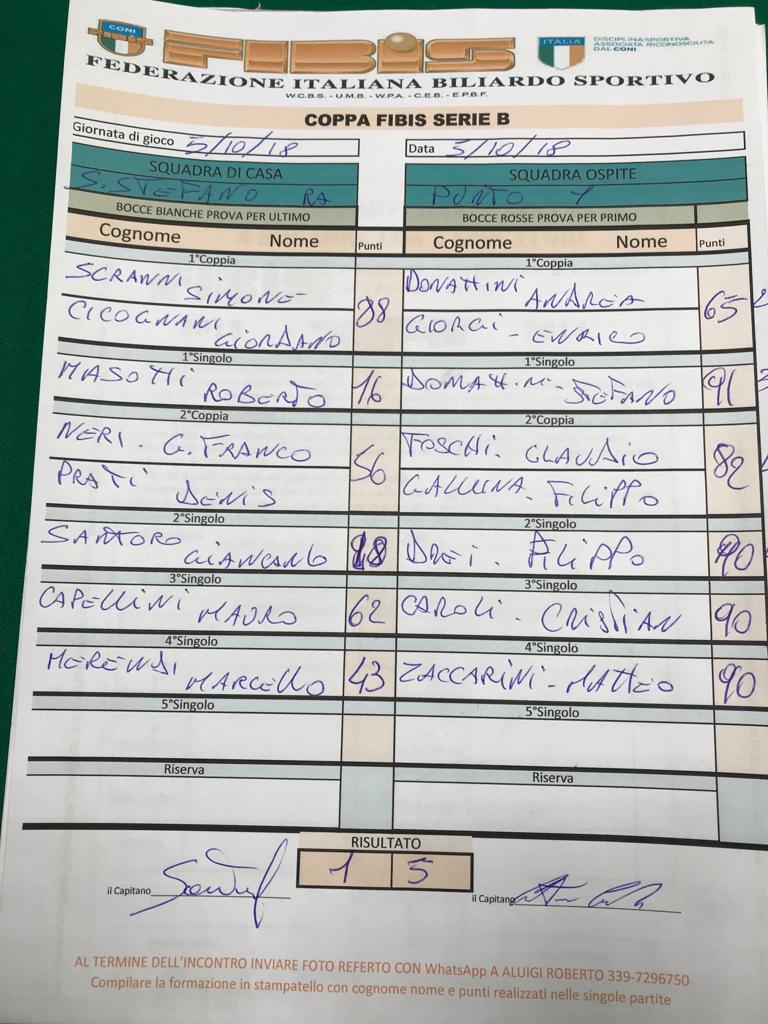 CONI
FIBIS
ITALIA
DISCIPLINA SPORTIVA
ASSOCIATA RICONOSCIUTA
DAL CONI
FEDERAZIONE ITALIANA BILIARDO SPORTIVO
W.C.B.S. - U.M.B. - W.P.A. - C.E.B. - E.P.B.F.
COPPA FIBIS SERIE B
Giornata di gioco 5/10/18 Data 5/10/18
SQUADRA DI CASA SQUADRA OSPITE
S. STEFANO RA PUNTO Y
BOCCE BIANCHE PROVA PER ULTIMO BOCCE ROSSE PROVA PER PRIMO
Cognome Nome Punti Cognome Nome Punti
1°Coppia 1°Coppia
SCRANNI SIMONE 88 DONATTINI ANDREA 65
CICOGNANI GIORDANO GIORGI - ENRICO
1°Singolo 1°Singolo
MASOTTI ROBERTO 16 DONATTINI - STEFANO 91
2°Coppia 2°Coppia
NERI. G. FRANCO 56 FOSCHI. CLAUDIO 82
PRATI DENIS GALLINA. FILIPPO
2°Singolo 2°Singolo
SANTORO GIANCARLO DREI. FILIPPO 90
3°Singolo 3°Singolo
CAPELLINI MAURO 62 CAROLI - CRISTIAN 90
4°Singolo 4°Singolo
MERENDI MARCELLO 43 ZACCARINI - MATTEO 90
5°Singolo 5°Singolo
Riserva Riserva
RISULTATO
1 5
il Capitano il Capitano
AL TERMINE DELL'INCONTRO INVIARE FOTO REFERTO CON WhatsApp A ALUIGI ROBERTO 339-7296750
Compilare la formazione in stampatello con cognome nome e punti realizzati nelle singole partite